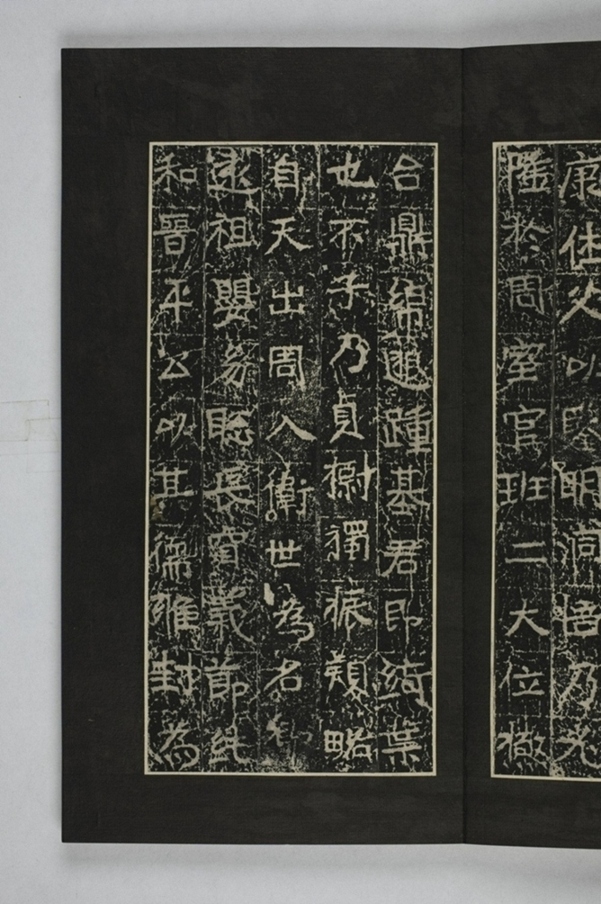 康佐火以堅明洞悟乃光
隆於周室官班二大位徹
台鼎綿邈踵基君即綺葉
也不乃貞樹獨振略
自天出周入衛世為名
遠祖嬰聡長義節純
和晉平公以其儒雅封為